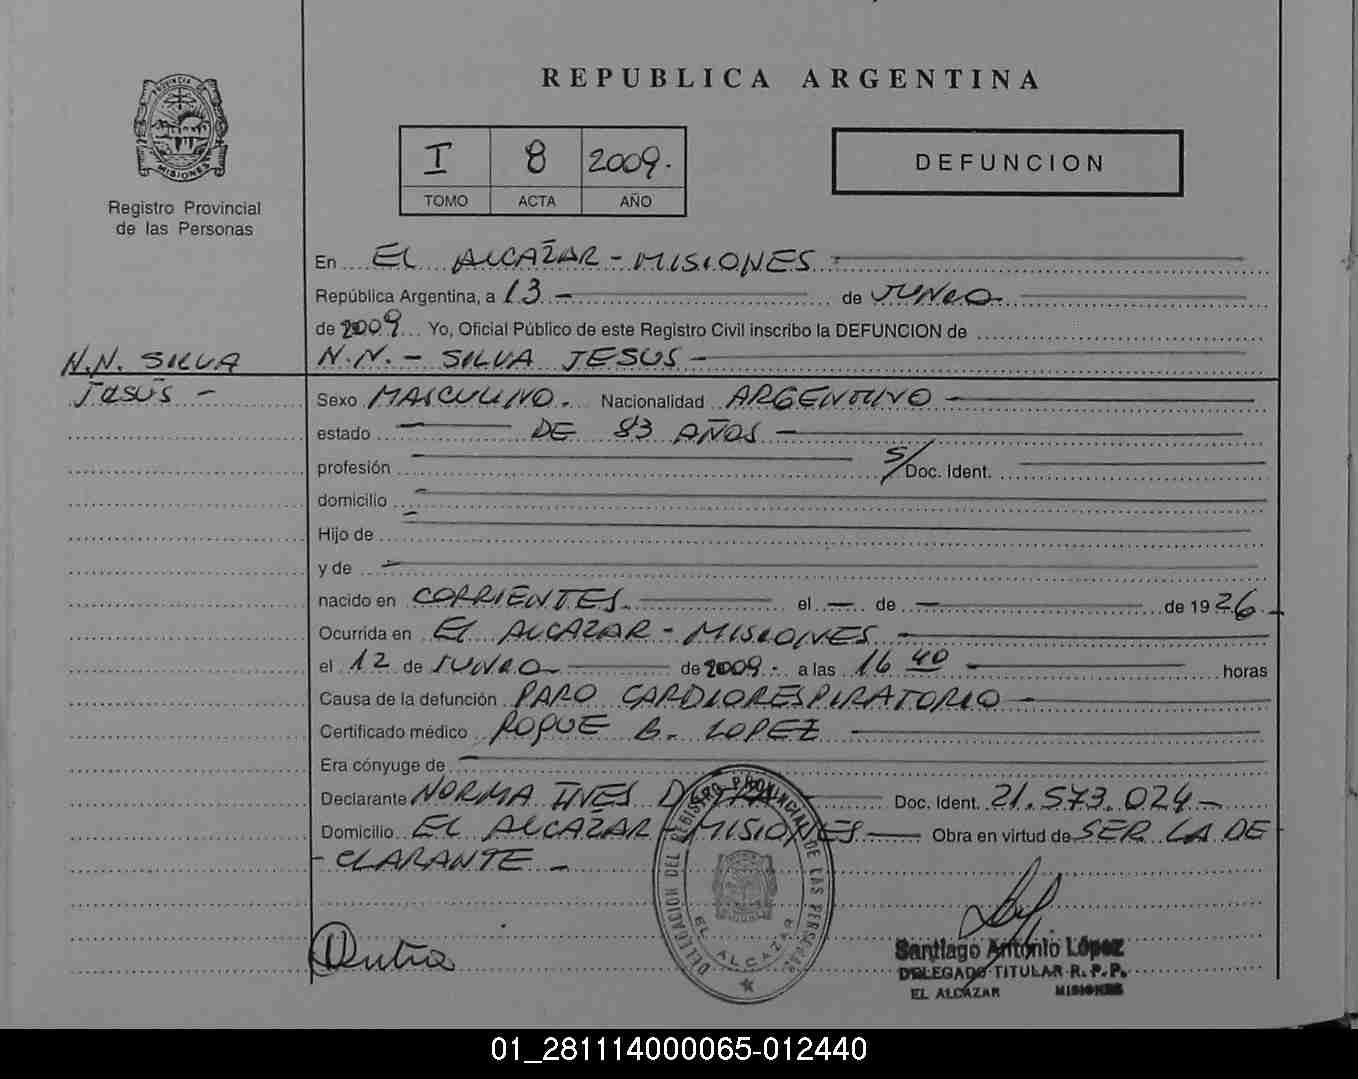 REPUBLICA ARGENTINA
PROVINCIA DE
MISIONES
Registro Provincial
de las Personas
I 8 2009.
TOMO ACTA AÑO
DEFUNCION
En EL ALCAZAR - MISIONES
República Argentina, a 13 - de JUNIO
de 2009 Yo, Oficial Público de este Registro Civil inscribo la DEFUNCION de
N.N. - SILVA JESUS -
N.N. SILVA
Jesús -
Sexo MASCULINO. Nacionalidad ARGENTINO -
estado - DE 83 AÑOS -
profesión S/Doc. Ident.
domicilio
Hijo de
y de
nacido en CORRIENTES. el - de - de 1926-
Ocurrida en EL ALCAZAR - MISIONES
el 12 de JUNIO de 2009- a las 16 40 horas
Causa de la defunción PARO CARDIORESPIRATORIO -
Certificado médico ROQUE B. LOPEZ
Era cónyuge de
Declarante NORMA INES Doc. Ident. 21.573.024-
Domicilio EL ALCAZAR - MISIONES Obra en virtud de SER LA DE
- CLARANTE -
DELEGACION DEL REGISTRO PROVINCIAL DE LAS PERSONAS
EL ALCAZAR
Dutra
Santiago Antonio López
DELEGADO TITULAR R.P.P.
EL ALCAZAR MISIONES
01_281114000065-012440